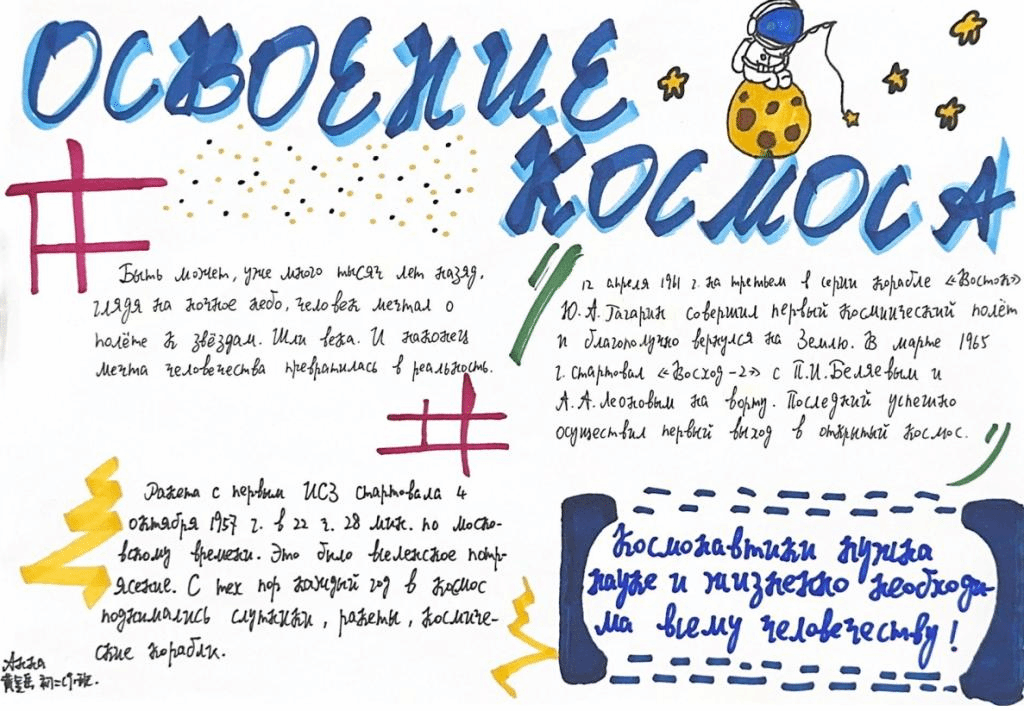 ОСВОЕНИЕ
КОСМОСА
Быть может, уже много тысяч лет назад,
глядя на ночное небо, человек мечтал о
полёте к звёздам. Шли века. И наконец
мечта человечества превратилась в реальность.
12 апреля 1961 г. на третьем в серии корабле «Восток»
Ю. А. Гагарин совершил первый космический полёт
и благополучно вернулся на Землю. В марте 1965
г. стартовал «Восход-2» с П.И. Беляевым и
А. А. Леоновым на борту. Последний успешно
осуществил первый выход в открытый космос.
Ракета с первым ИСЗ стартовала 4
октября 1957 г. в 22 ч. 28 мин. по моско-
вскому времени. Это было вселенское потр-
ясение. С тех пор каждый год в космос
поднимались спутники, ракеты, космиче-
ские корабли.
Космонавтики нужна
науке и жизненно необходи-
ма всему человечеству!
Анна
初二 班.